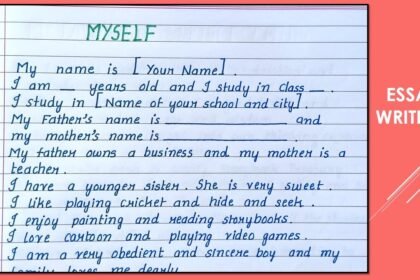 MYSELF
My name is [Your Name].
I am __ years old and I study in class __.
I study in [Name of your school and city].
My Father's name is ______________ and
my mother's name is ______________.
My father owns a business and my mother is a
teacher.
I have a younger sister. She is very sweet.
I like playing cricket and hide and seek.
I enjoy painting and reading storybooks.
I love cartoon and playing video games.
I am a very obedient and sincere boy and my
family loves me dearly
ESSA
WRITI